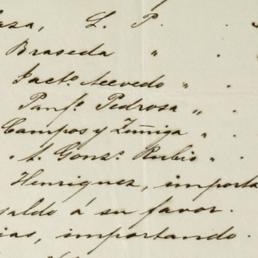 asa, L. P. "
Braseda "
Jacto. Acevedo "
Panfo. Pedrosa "
Campos y Zúñiga "
A. Gonzs. Rubio "
Henriquez, importa
saldo á su favor.
ias, importando.